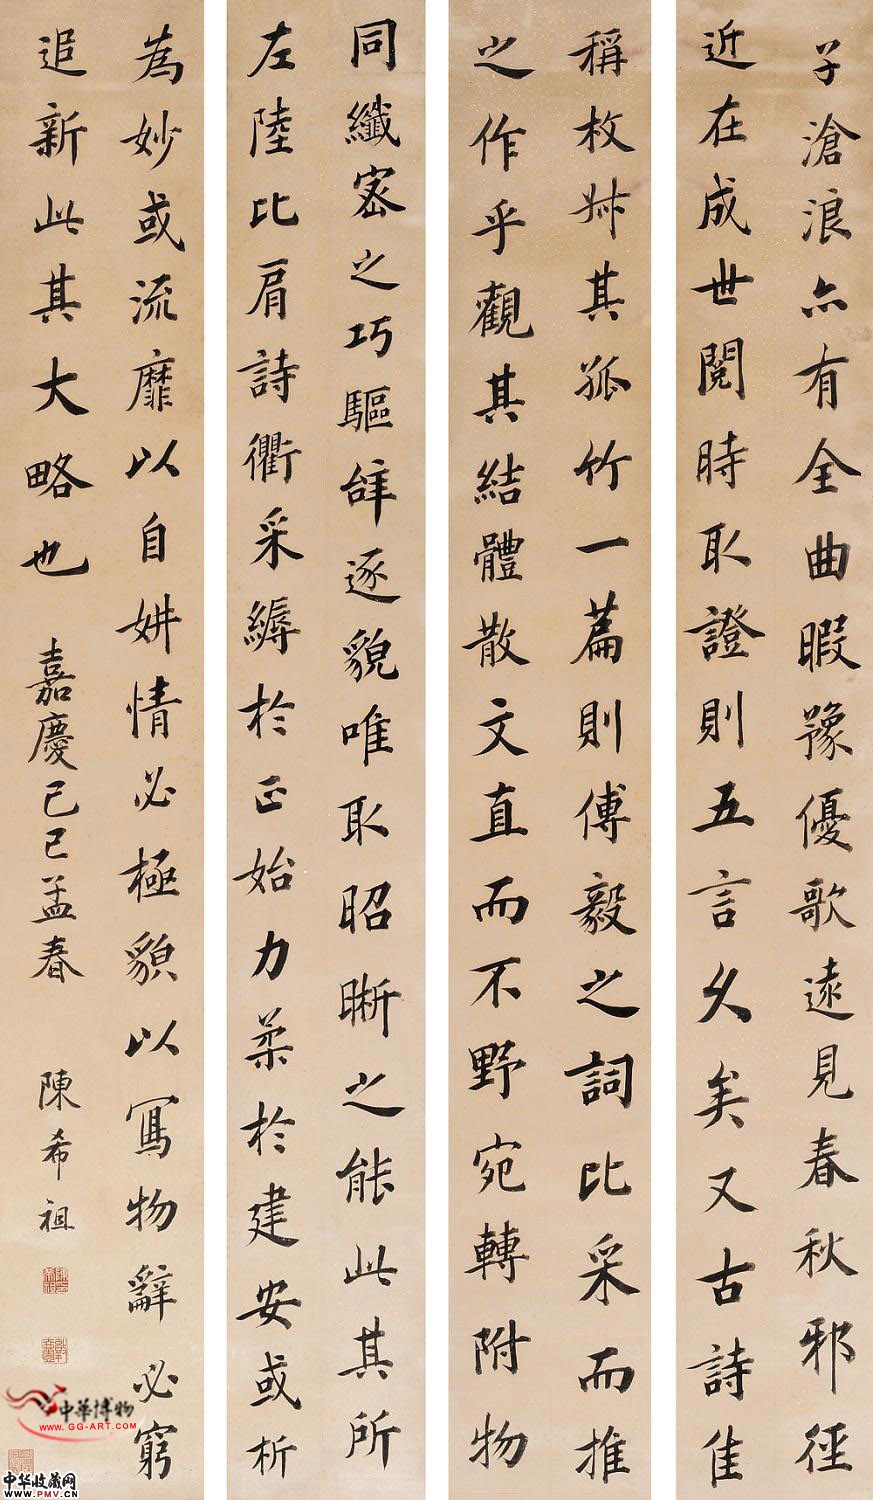 子滄浪亦有全曲暇豫優歌遠見春秋邪徑
近在成世閱時取證則五言久矣又古詩佳
稱枚叔其孤竹一篇則傅毅之詞比采而推
之作乎觀其結體散文直而不野宛轉附物
同纖密之巧驅辭逐貌唯取昭晰之能此其所
左陸比肩詩衢采縟於正始力柔於建安或析
為妙或流靡以自妍情必極貌以寫物辭必窮
追新此其大略也 嘉慶己巳孟春 陳希祖
中華博物
WWW.GG-ART.COM
中华收藏网
WWW.PMV.CN